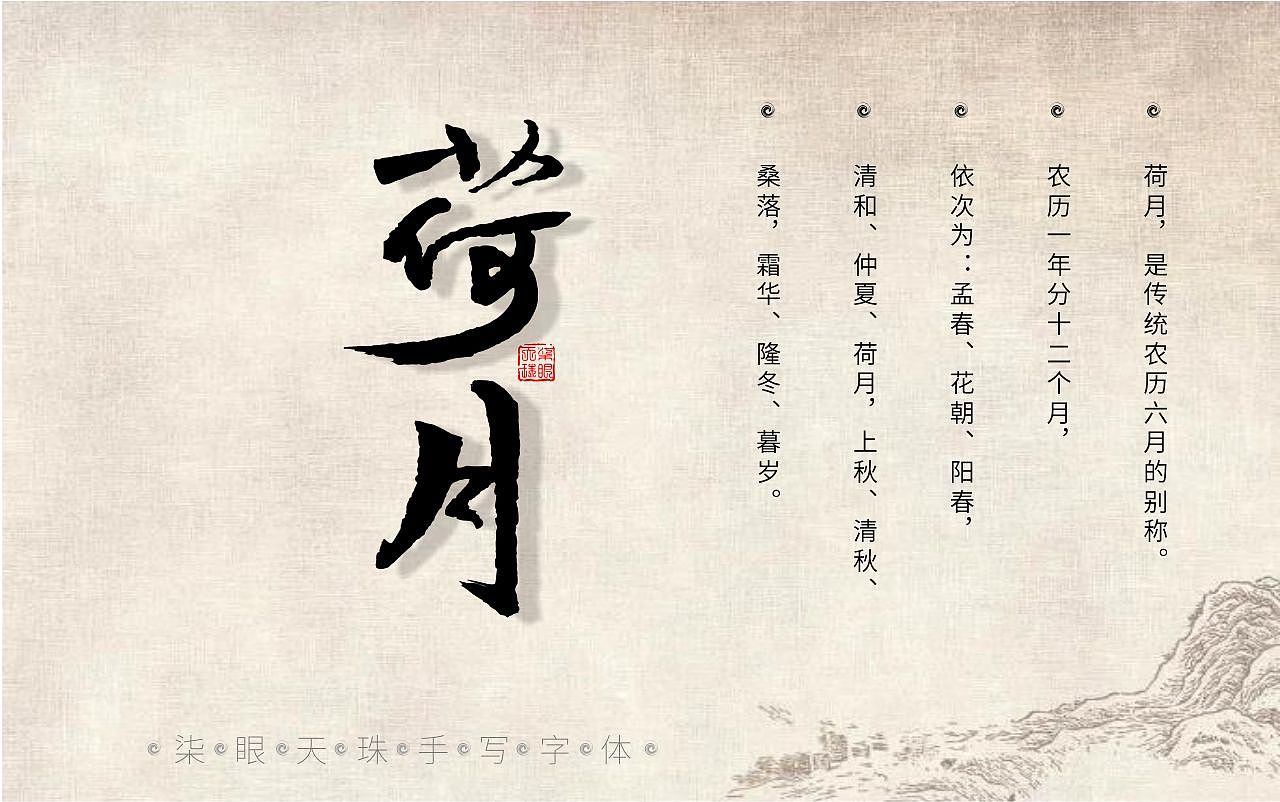 荷月
柒眼天珠
荷月，是传统农历六月的别称。
农历一年分十二个月，
依次为：孟春、花朝、阳春，
清和、仲夏、荷月，上秋、清秋、
桑落，霜华、隆冬、暮岁。
柒眼天珠手写字体